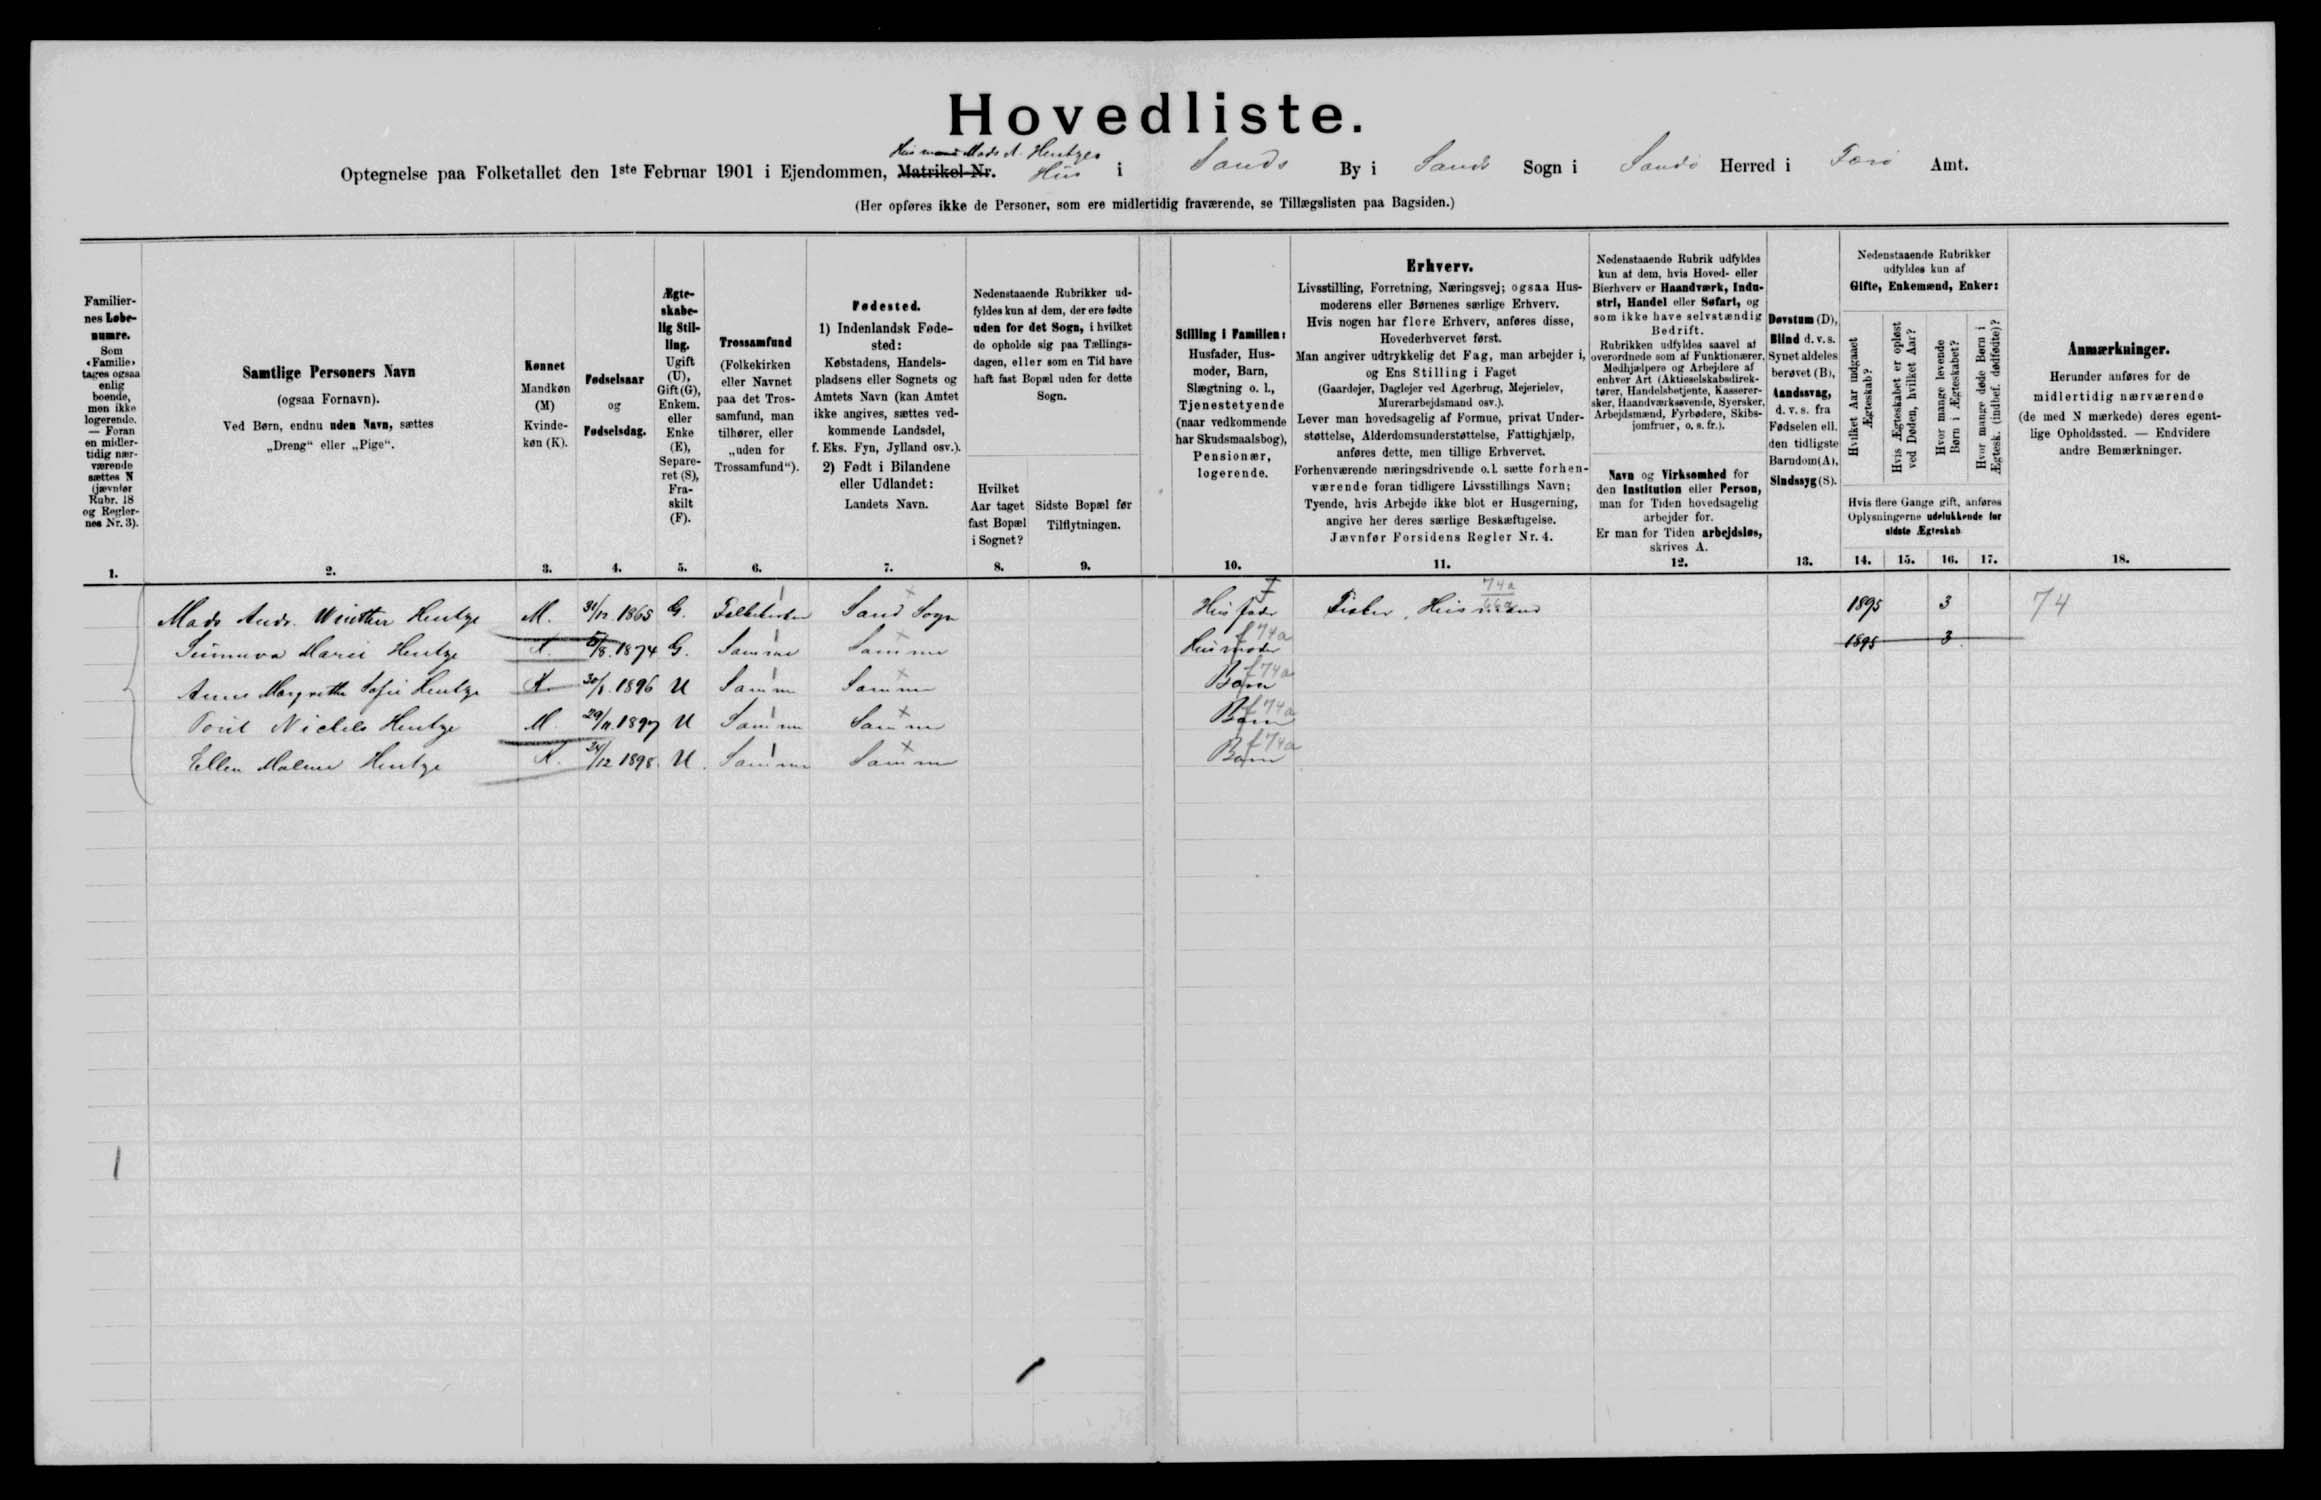 Hovedliste.
Husmand Mads A. Hentzes
Optegnelse paa Folketallet den 1ste Februar 1901 i Ejendommen, Matrikel-Nr. Hus i Sands By i Sands Sogn i Sandø Herred i Færø Amt.
(Her opføres ikke de Personer, som ere midlertidig fraværende, se Tillægslisten paa Bagsiden.)
Familier-
nes Løbe-
numre.
Som
«Familie»
tages ogsaa
enlig
boende,
men ikke
logerende.
— Foran
en midler-
tidig nær-
værende
sættes N
(jævnfør
Rubr. 18
og Regler-
nes Nr. 3).
1.
Samtlige Personers Navn
(ogsaa Fornavn).
Ved Børn, endnu uden Navn, sættes
„Dreng“ eller „Pige“.
2.
Kønnet
Mandkøn
(M)
Kvinde-
køn (K).
3.
Fødselsaar
og
Fødselsdag.
4.
Ægte-
skabe-
lig Stil-
ling.
Ugift
(U),
Gift (G),
Enkem.
eller
Enke
(E),
Separe-
ret (S),
Fra-
skilt
(F).
5.
Trossamfund
(Folkekirken
eller Navnet
paa det Tros-
samfund, man
tilhører, eller
„uden for
Trossamfund“).
6.
Fødested.
1) Indenlandsk Føde-
sted:
Købstadens, Handels-
pladsens eller Sognets og
Amtets Navn (kan Amtet
ikke angives, sættes ved-
kommende Landsdel,
f. Eks. Fyn, Jylland osv.).
2) Født i Bilandene
eller Udlandet:
Landets Navn.
7.
Nedenstaaende Rubrikker ud-
fyldes kun af dem, der ere fødte
uden for det Sogn, i hvilket
de opholde sig paa Tællings-
dagen, eller som en Tid have
haft fast Bopæl uden for dette
Sogn.
Hvilket
Aar taget
fast Bopæl
i Sognet?
8.
Sidste Bopæl før
Tilflytningen.
9.
Stilling i Familien:
Husfader, Hus-
moder, Barn,
Slægtning o. l.,
Tjenestetyende
(naar vedkommende
har Skudsmaalsbog),
Pensionær,
logerende.
10.
Erhverv.
Livsstilling, Forretning, Næringsvej; ogsaa Hus-
moderens eller Børnenes særlige Erhverv.
Hvis nogen har flere Erhverv, anføres disse,
Hovederhvervet først.
Man angiver udtrykkelig det Fag, man arbejder i,
og Ens Stilling i Faget
(Gaardejer, Daglejer ved Agerbrug, Mejerielev,
Murerarbejdsmand osv.).
Lever man hovedsagelig af Formue, privat Under-
støttelse, Alderdomsunderstøttelse, Fattighjælp,
anføres dette, men tillige Erhvervet.
Forhenværende næringsdrivende o.l. sætte forhen-
værende foran tidligere Livsstillings Navn;
Tyende, hvis Arbejde ikke blot er Husgerning,
angive her deres særlige Beskæftigelse.
Jævnfør Forsidens Regler Nr. 4.
11.
Nedenstaaende Rubrik udfyldes
kun af dem, hvis Hoved- eller
Bierhverv er Haandværk, Indu-
stri, Handel eller Søfart, og
som ikke have selvstændig
Bedrift.
Rubrikken udfyldes saavel af
overordnede som af Funktionærer,
Medhjælpere og Arbejdere af
enhver Art (Aktieselskabsdirek-
tører, Handelsbetjente, Kasserer-
sker, Haandværkssvende, Syersker,
Arbejdsmænd, Fyrbødere, Skibs-
jomfruer, o. s. fr.).
Navn og Virksomhed for
den Institution eller Person,
man for Tiden hovedsagelig
arbejder for.
Er man for Tiden arbejdsløs,
skrives A.
12.
Døvstum (D),
Blind d. v. s.
Synet aldeles
berøvet (B),
Aandssvag,
d. v. s. fra
Fødselen ell.
den tidligste
Barndom (A),
Sindssyg (S).
13.
Nedenstaaende Rubrikker
udfyldes kun af
Gifte, Enkemænd, Enker:
Hvilket Aar indgaaet
Ægteskab?
Hvis Ægteskabet er opløst
ved Døden, hvilket Aar?
Hvor mange levende
Børn i Ægteskabet?
Hvor mange døde Børn i
Ægtesk. (indbef. dødfødte)?
Hvis flere Gange gift, anføres
Oplysningerne udelukkende for
sidste Ægteskab.
14. 15. 16. 17.
Anmærkninger.
Herunder anføres for de
midlertidig nærværende
(de med N mærkede) deres egent-
lige Opholdssted. — Endvidere
andre Bemærkninger.
18.
Mads Andr. Winther Hentze M. 31/12 1865 G. Folkekirken Sand Sogn Husfader Fisker, Husmand 74a 1895 3 74
Sunneva Marie Hentze K. /8. 1874 G. Samme Samme Husmoder f 74a 1895 3.
Anne Margrethe Sofie Hentze K. 30/1. 1896 U Samme Samme Barn f 74a
Poul Nickels Hentze M. 29/11. 1897 U Samme Samme Barn f 74a
Ellen Malene Hentze K. 24/12 1898. U. Samme Samme Barn f 74a
1